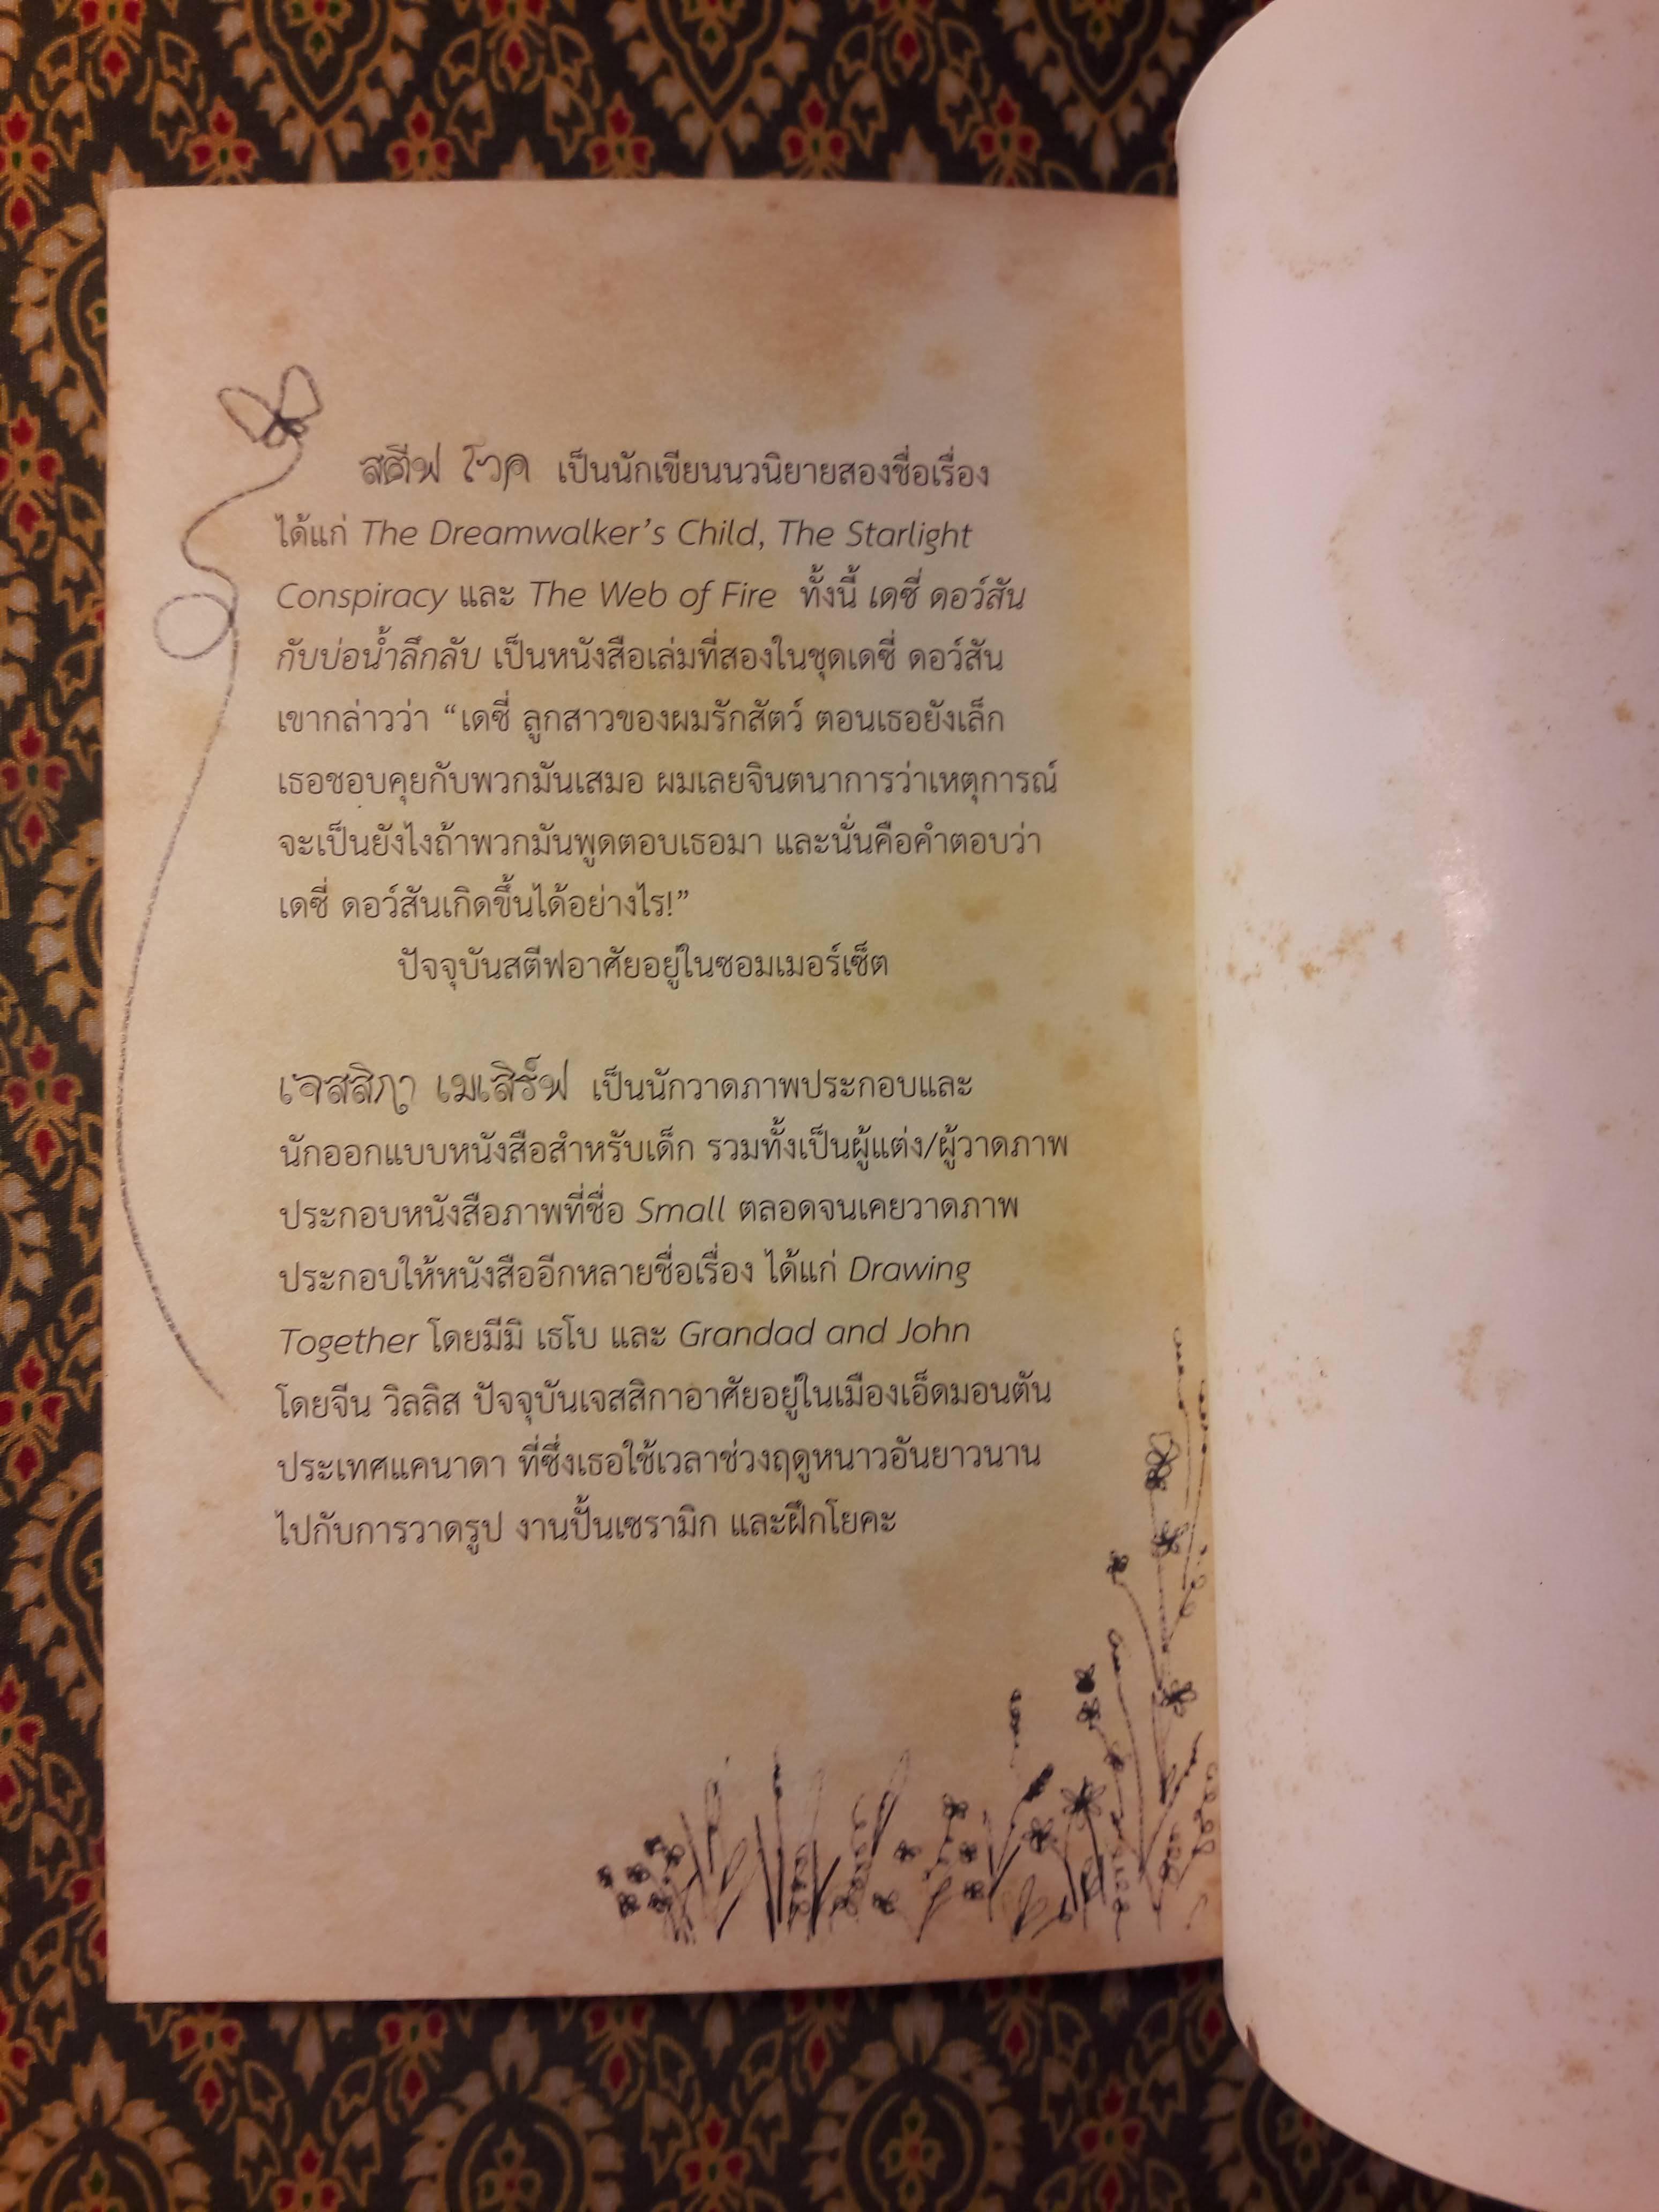 สตีฟ โวค เป็นนักเขียนนวนิยายสองชื่อเรื่อง
ได้แก่ The Dreamwalker's Child, The Starlight
Conspiracy และ The Web of Fire ทั้งนี้ เดซี่ ดอว์สัน
กับบ่อน้ำลึกลับ เป็นหนังสือเล่มที่สองในชุดเดซี่ ดอว์สัน
เขากล่าวว่า “เดซี่ ลูกสาวของผมรักสัตว์ ตอนเธอยังเล็ก
เธอชอบคุยกับพวกมันเสมอ ผมเลยจินตนาการว่าเหตุการณ์
จะเป็นยังไงถ้าพวกมันพูดตอบเธอมา และนั่นคือคำตอบว่า
เดซี่ ดอว์สันเกิดขึ้นได้อย่างไร!”
ปัจจุบันสตีฟอาศัยอยู่ในซอมเมอร์เซ็ต
เจสสิกา เมเสิร์ฟ เป็นนักวาดภาพประกอบและ
นักออกแบบหนังสือสำหรับเด็ก รวมทั้งเป็นผู้แต่ง/ผู้วาดภาพ
ประกอบหนังสือภาพที่ชื่อ Small ตลอดจนเคยวาดภาพ
ประกอบให้หนังสืออีกหลายชื่อเรื่อง ได้แก่ Drawing
Together โดยมีมิ เธโบ และ Grandad and John
โดยจีน วิลลิส ปัจจุบันเจสสิกาอาศัยอยู่ในเมืองเอ็ดมอนตัน
ประเทศแคนาดา ที่ซึ่งเธอใช้เวลาช่วงฤดูหนาวอันยาวนาน
ไปกับการวาดรูป งานปั้นเซรามิก และฝึกโยคะ